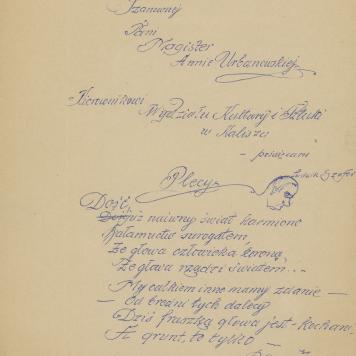 Szanownej
Pani
Magister
Annie Urbanowskiej
Kierownikowi
Wydziału Kultury i Sztuki
w Kaliszu
– poświęcam
Plecy
Dość,
już naiwny świat karmiono
Kałamutw surogatem,
Że głowa człowieka koroną,
Że głowa rządzi światem...
My całkiem inne mamy zdanie –
– Od brazni tych dalecy
Dziś fraszką głowa jest – kochany
A grunt, to tylko –